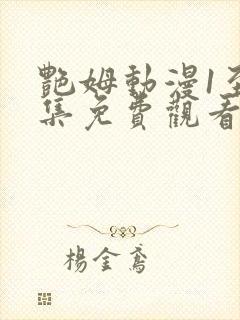 艷姆動漫1至
集免費觀看
楊金鳶